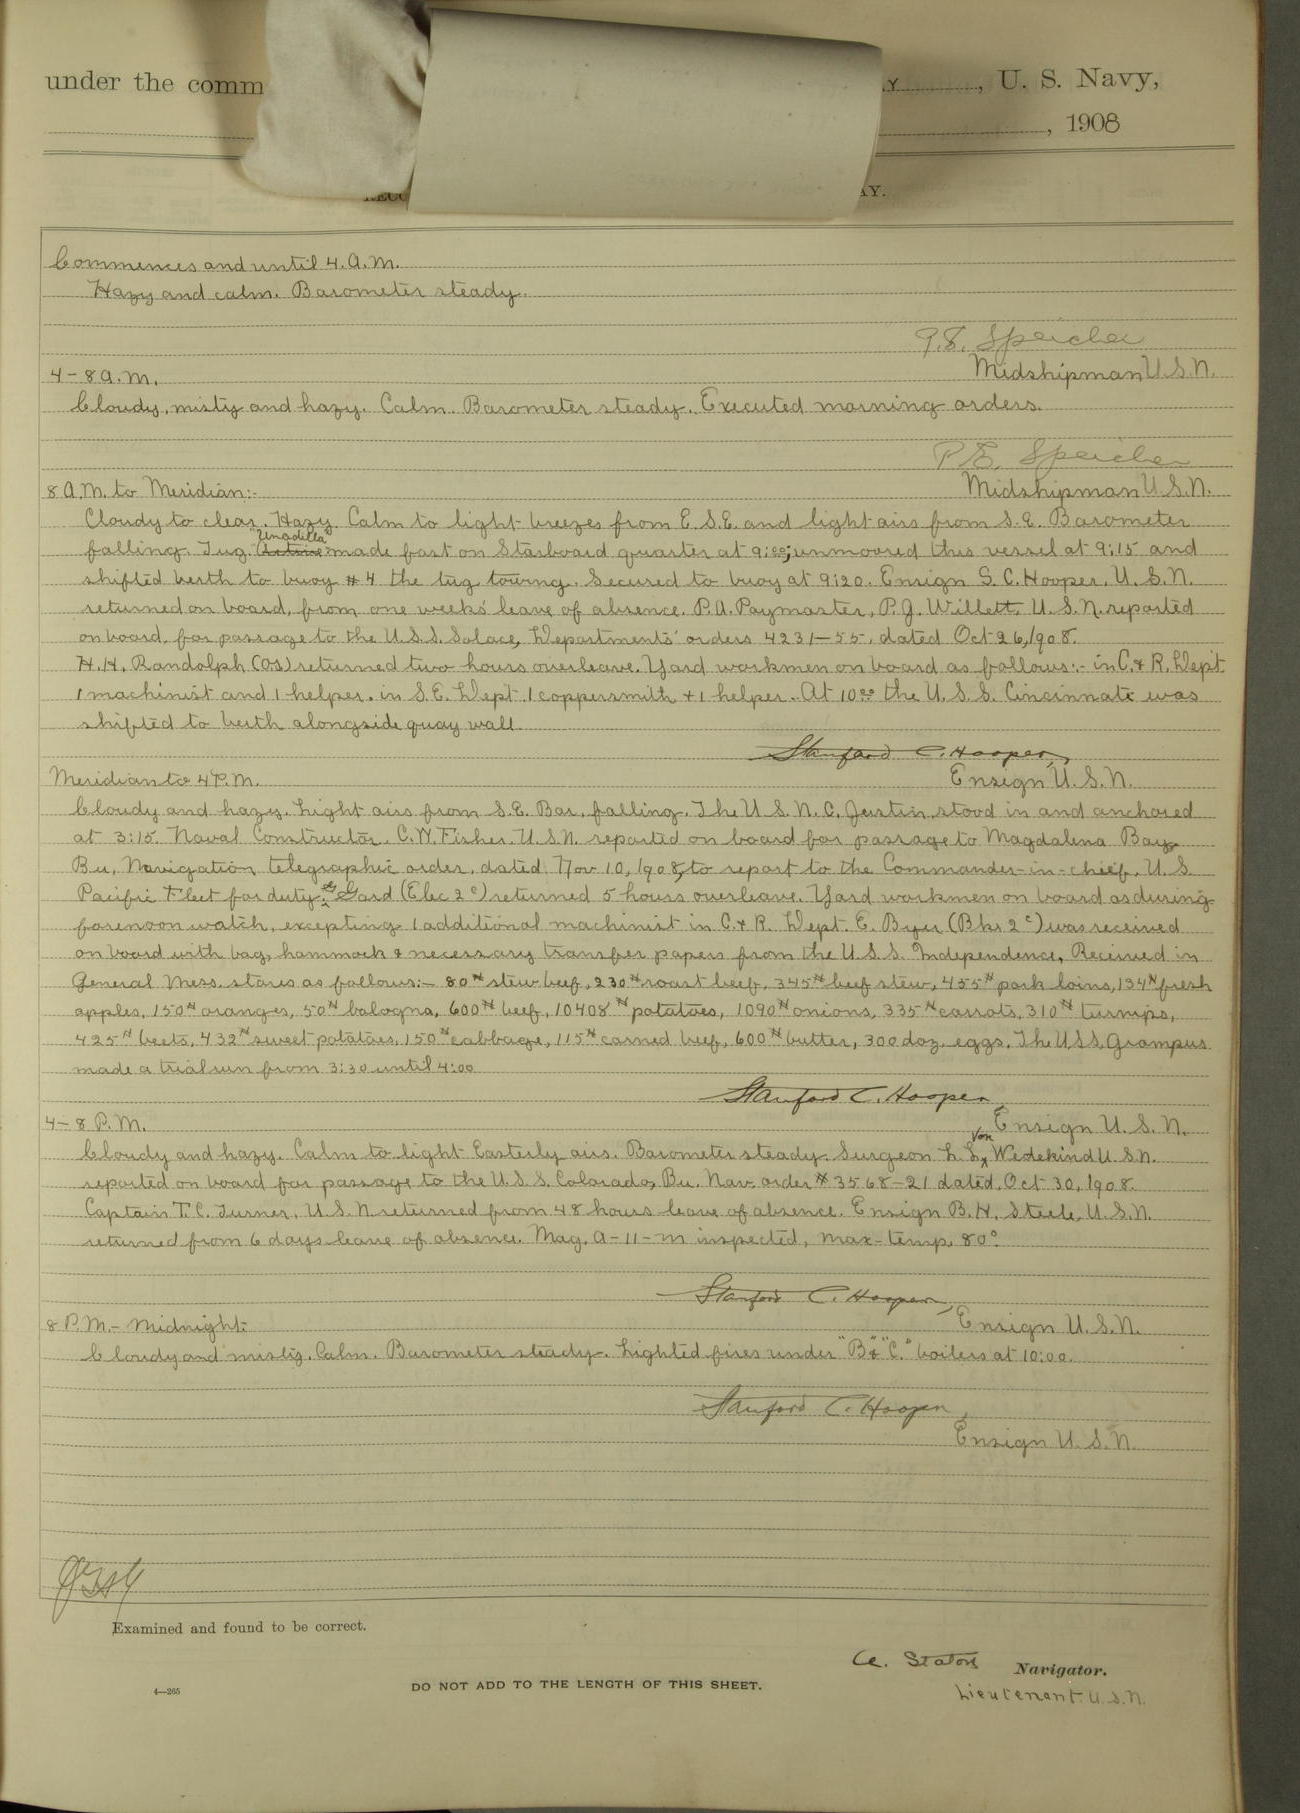 under the comm , U. S. Navy,
, 1908
AY.
Commences and until 4. A.M.
Hazy and calm. Barometer steady.
Speicher
Midshipman U.S.N.
4-8 a.m.
Cloudy, misty and hazy. Calm. Barometer steady. Executed morning orders.
P.E. Speicher
Midshipman U.S.N.
8 A.M. to Meridian:-
Cloudy to clear. Hazy. Calm to light breezes from E.S.E. and light airs from S.E. Barometer
falling. Tug Unadilla made fast on Starboard quarter at 9:00; unmoored this vessel at 9:15 and
shifted berth to buoy #4 the tug towing. Secured to buoy at 9:20. Ensign S.C. Hooper, U.S.N.
returned on board, from one weeks' leave of absence. P.A. Paymaster, P.J. Willett, U.S.N. reported
on board, for passage to the U.S.S. Solace, Departments' orders 4231-55, dated Oct 26, 1908.
H.H. Randolph (OS) returned two hours overleave. Yard workmen on board as follows:- in C. & R. Dept.
1 machinist and 1 helper. in S.E. Dept. 1 coppersmith + 1 helper. At 10:00 the U.S.S. Cincinnati was
shifted to berth alongside quay wall.
Stanford C. Hooper,
Ensign U.S.N.
Meridian to 4 P.M.
Cloudy and hazy. Light airs from S.E. Bar. falling. The U.S.N.C. Justin, stood in and anchored
at 3:15. Naval Constructor, C.W. Fisher, U.S.N. reported on board for passage to Magdalena Bay,
Bu. Navigation telegraphic order, dated Nov 10, 1908, to report to the Commander-in-chief, U.S.
Pacific Fleet for duty. Gard (Elec 2c) returned 5 hours overleave. Yard workmen on board as during
forenoon watch, excepting 1 additional machinist in C. & R. Dept. E. Byer (Bkr 2c) was received
on board with bag, hammock & necessary transfer papers from the U.S.S. Independence. Received in
General Mess. stores as follows:- 80# stew beef, 230# roast beef, 345# beef stew, 455# pork loins, 134# fresh
apples, 150# oranges, 50# bologna, 600# beef, 10408# potatoes, 1090# onions, 335# carrots, 310# turnips,
425# beets, 432# sweet potatoes, 150# cabbage, 115# corned beef, 600# butter, 300 doz. eggs. The U.S.S. Grampus
made a trial run from 3:30 until 4:00
Stanford C. Hooper,
Ensign U.S.N.
4-8 P.M.
Cloudy and hazy. Calm to light Easterly airs. Barometer steady. Surgeon L. L. Von Wedekind U.S.N.
reported on board for passage to the U.S.S. Colorado, Bu. Nav. order #3568-21 dated, Oct 30, 1908.
Captain T.C. Turner, U.S.N. returned from 48 hours leave of absence. Ensign B.H. Steele, U.S.N.
returned from 6 days leave of absence. Mag. A-11-M inspected, max-temp. 80°.
Stanford C. Hooper,
Ensign U.S.N.
8 P.M.- Midnight:
Cloudy and misty. Calm. Barometer steady. Lighted fires under "B" & "C." boilers at 10:00.
Stanford C. Hooper,
Ensign U.S.N.
Examined and found to be correct.
Navigator.
Lieutenant. U.S.N.
4—265
DO NOT ADD TO THE LENGTH OF THIS SHEET.